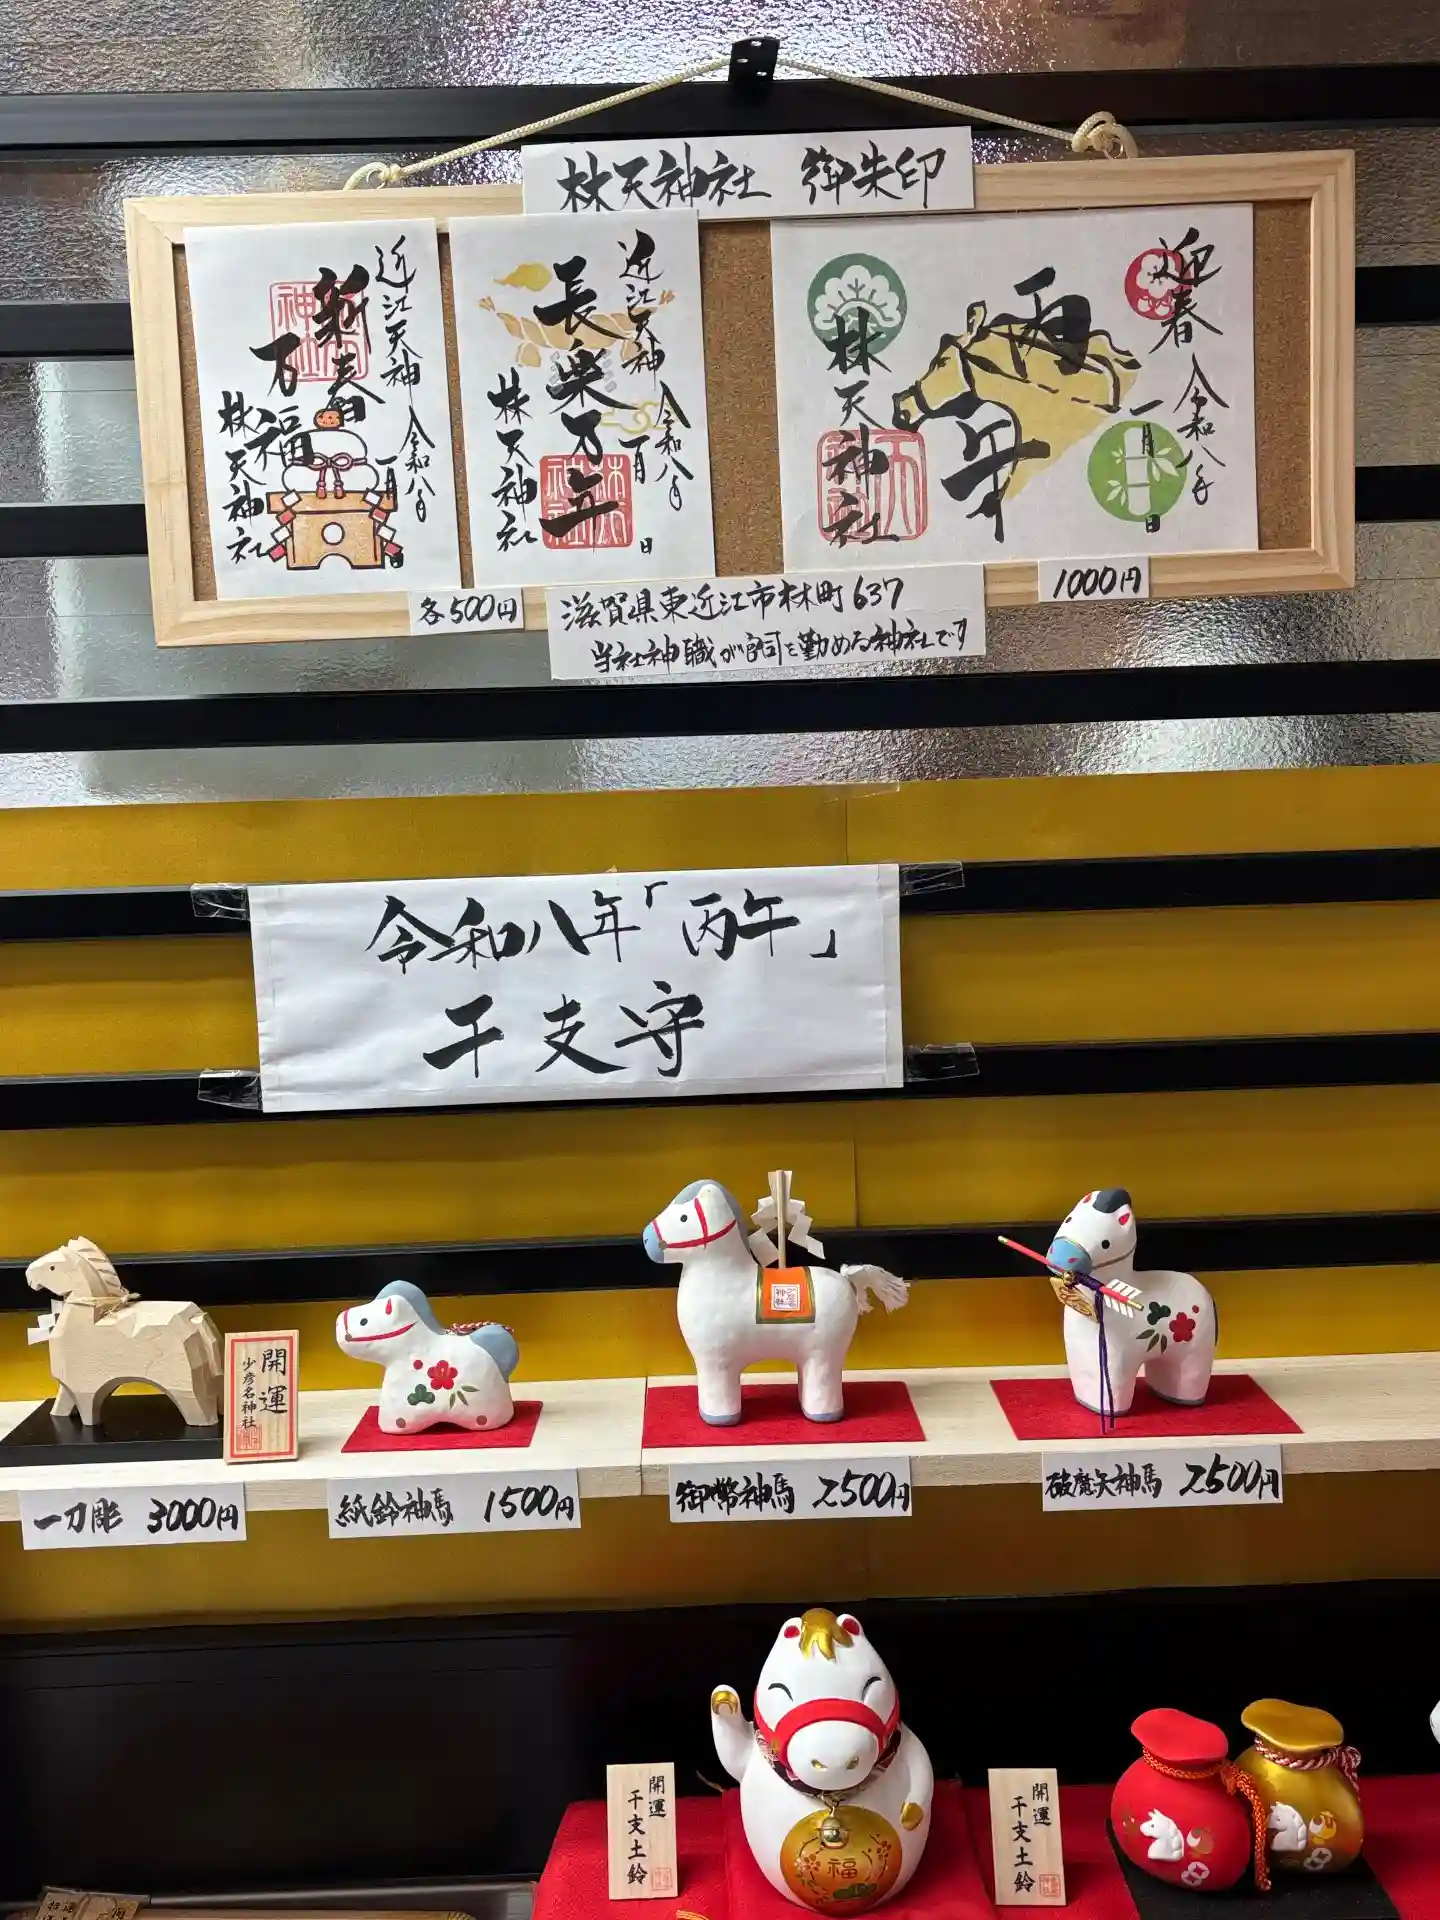 林天神社 御朱印
近江天神
新春
万福
林天神社
令和八年
一月 日
近江天神
長楽万年
林天神社
令和八年
一月 日
迎春
令和八年
一月 日
丙午
林天神社
各500円
滋賀県東近江市林町637
当社神職が宮司を勤める神社です
1000円
令和八年「丙午」
干支守
開運
少彦名神社
一刀彫 3000円
紙鈴神馬 1500円
御幣神馬 2500円
破魔矢神馬 2500円
開運
干支土鈴
福
開運
干支土鈴